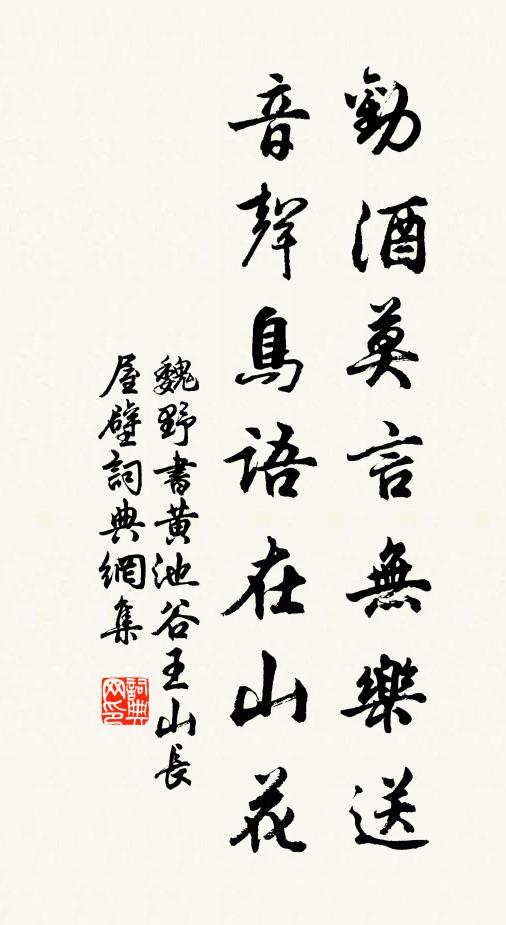 勸酒莫言無樂送
音聲鳥語在山花
魏野書黃池谷王山長
屋壁詞典網集
詞典網印